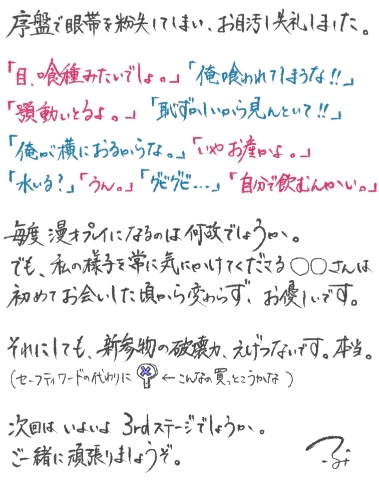 序盤で眼帯を紛失してしまい、お目汚し失礼しました。
「目、喰種みたいでしょ。」「俺喰われてしまうな!!」
「顎動いとるよ。」「恥ずかしいから見んといて!!」
「俺が横におるからな。」「いやお産かよ。」
「水いる?」「うん。」「グビグビ...」「自分で飲むんかい。」
毎度漫才プレイになるのは何故でしょうか。
でも、私の様子を常に気にかけてくださる○○さんは
初めてお会いした頃から変わらず、お優しいです。
それにしても、新参物の破壊力、えげつないです。本当。
(セーフティワードの代わりに ← こんなの買っとこうかな)
次回はいよいよ3rdステージでしょうか。
ご一緒に頑張りましょうぞ。